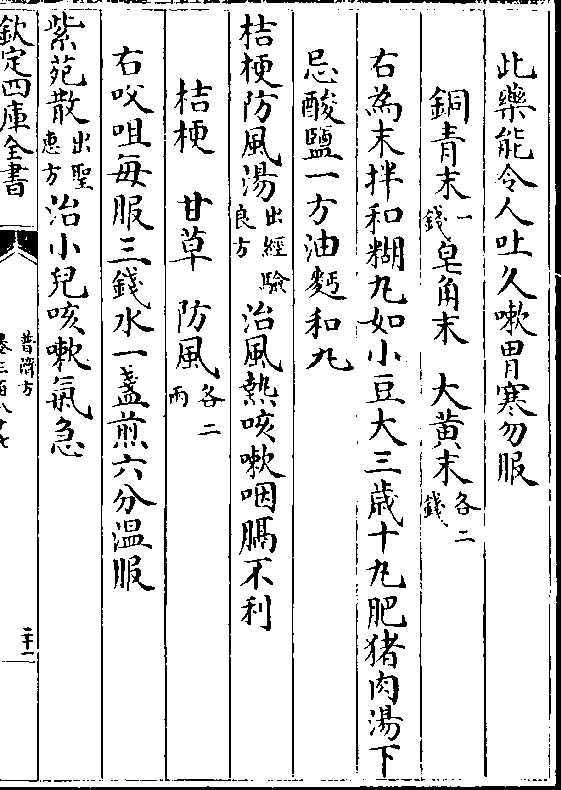 此藥能令人吐久嗽胃寒勿服
銅青末一錢 皂角末 大黄末各二錢
右為末拌和糊丸如小豆大三歳十丸肥猪肉湯下
忌酸鹽一方油麪和丸
桔梗防風湯出經驗良方 治風熱咳嗽咽膈不利
桔梗 甘草 防風各二兩
右㕮咀每服三錢水一盞煎六分温服
紫苑散出聖惠方 治小兒咳嗽氣急
欽定四庫全書
普濟方
卷三百八十七
二十一